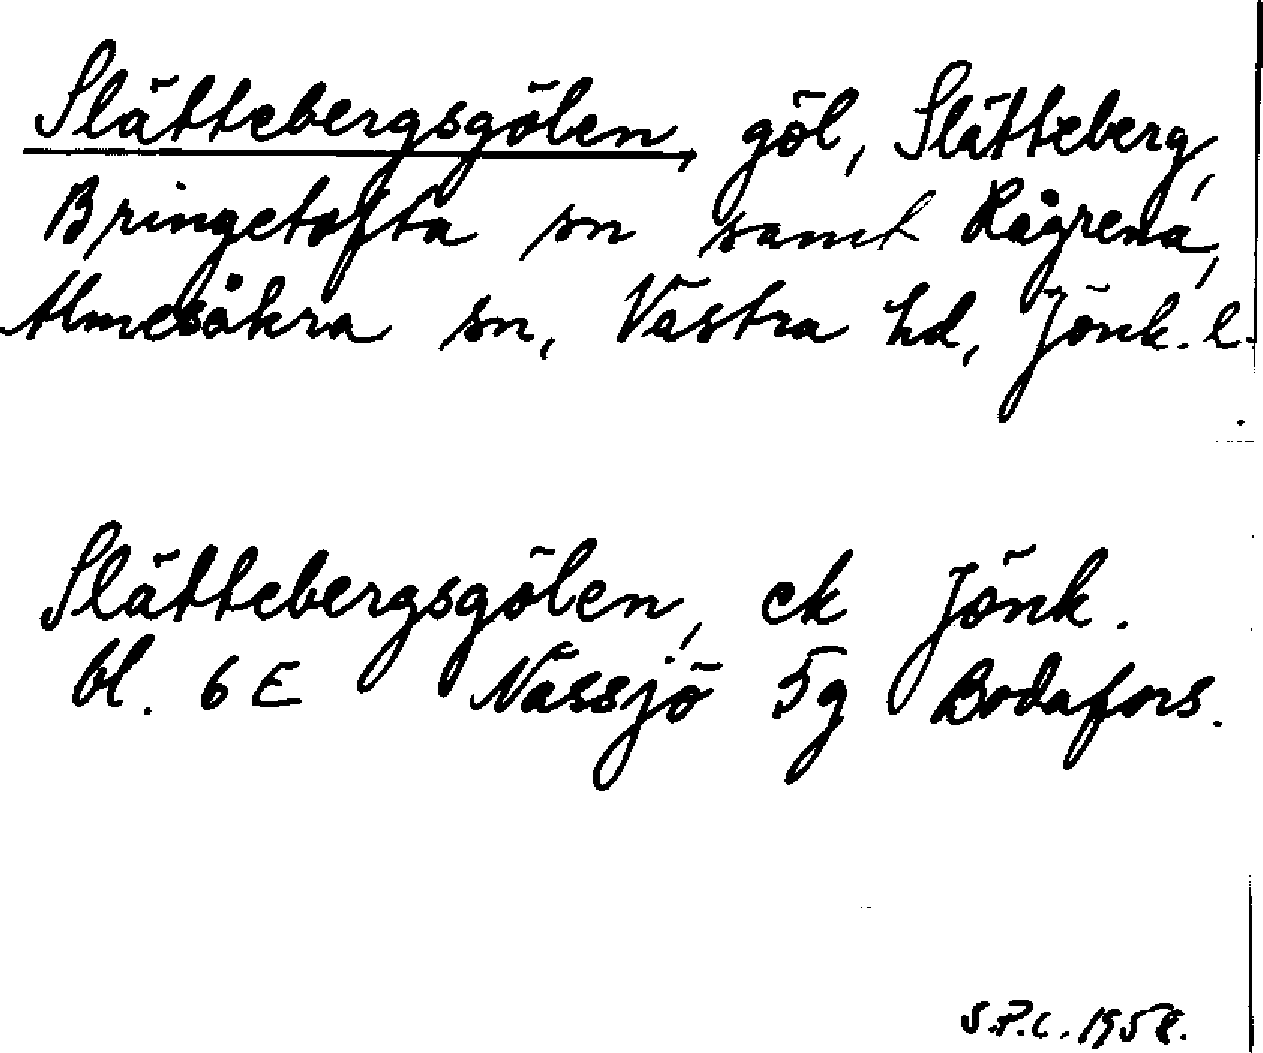 Slättebergsgölen, göl, Slätteberg,
Bringetofta sn samt Rågrena,
Almesåkra sn, Västra hd, Jönk. l.
Slättebergsgölen, ek Jönk.
bl. 6 E Nässjö 5g Bodafors.
S.P.C. 1958.